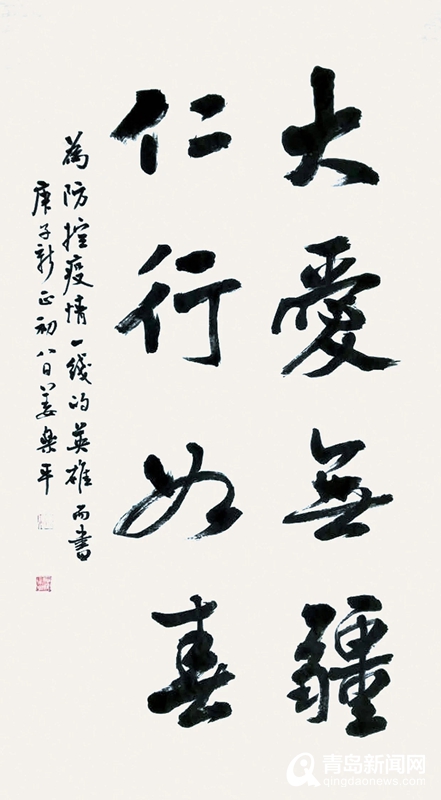 大愛無疆
仁行如春
為防控疫情一綫的英雄而書
庚子新正初八日姜樂平
青岛新闻网
qingdaonews.com